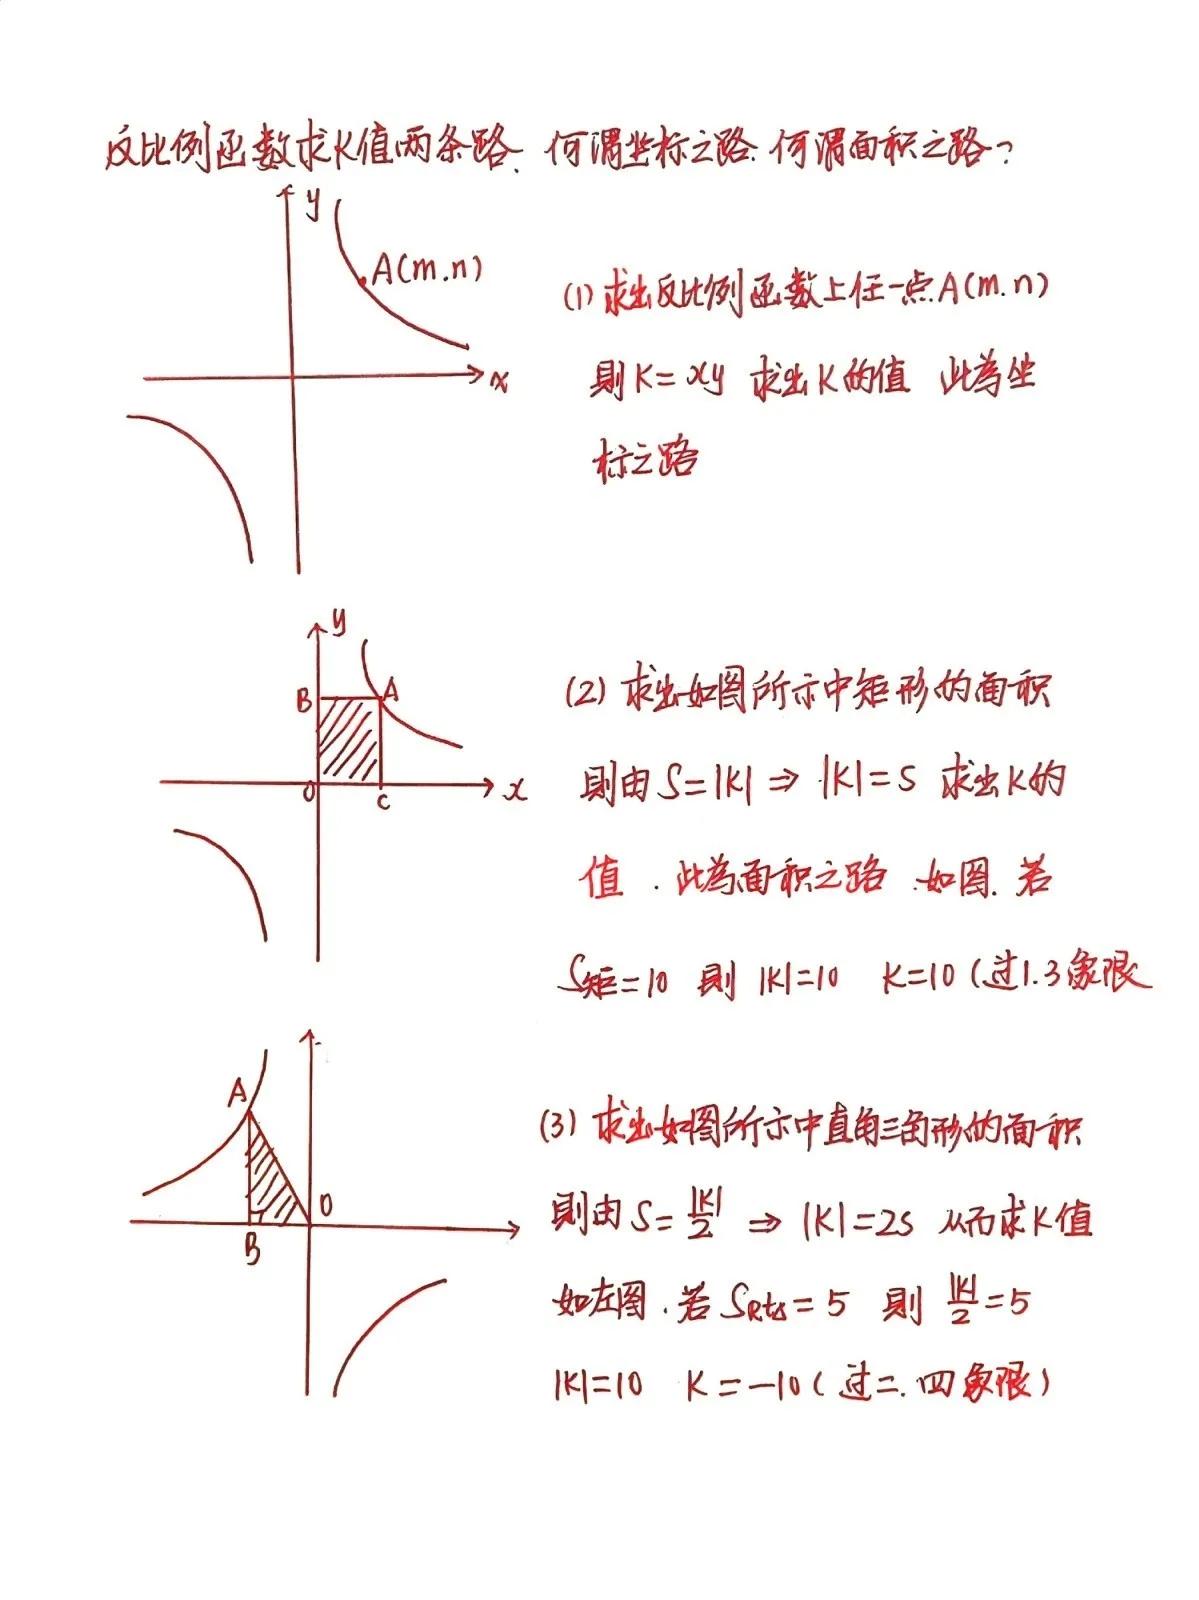 反比例函数求K值两条路、何谓坐标之路.何谓面积之路?
y
A(m.n)
x
(1) 求出反比例函数上任一点A(m.n)
則K=xy 求出K的值 此為坐
标之路
y
B
A
O
C
x
(2) 求出如图所示中矩形的面积
則由S=|K|⇒|K|=S 求出K的
值.此為面积之路.如图.若
S矩=10 則 |K|=10 K=10(过1.3象限
A
O
B
(3) 求出如图所示中直角三角形的面积
則由S=|K|/2⇒|K|=2S 从而求K值
如左图.若SRt△=5 則 |K|/2=5
|K|=10 K=-10(过二.四象限)